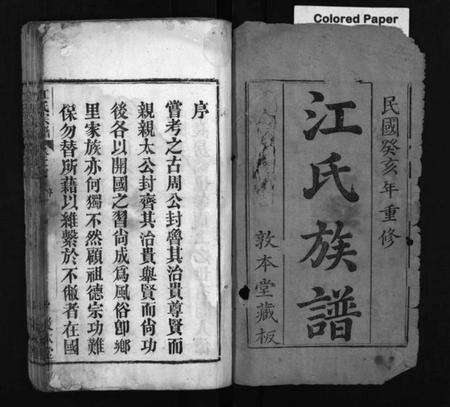 Colored Paper
民國癸亥年重修
江氏族譜
敦本堂藏板
序
嘗考之古周公封魯其治貴尊賢而
親親太公封齊其治貴與賢而尙功
後各以開國之習尙成爲風俗卽鄉
里家族亦何獨不然顧祖德宗功難
保勿替所藉以維繫於不敝者在國